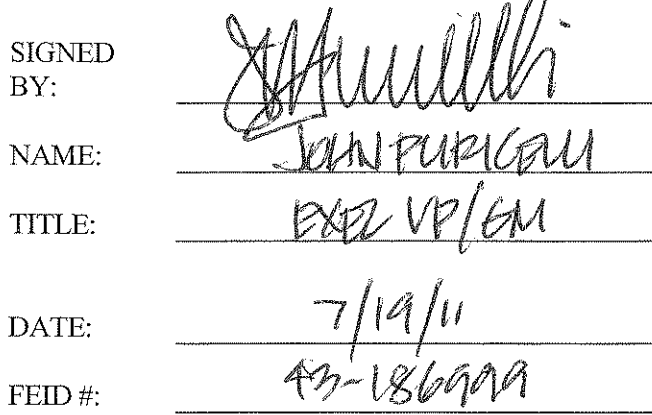 SIGNED
BY:
NAME: JOHN PURICELLI
TITLE: EXEC VP/GM
DATE: 7/19/11
FEID #: 43-186999